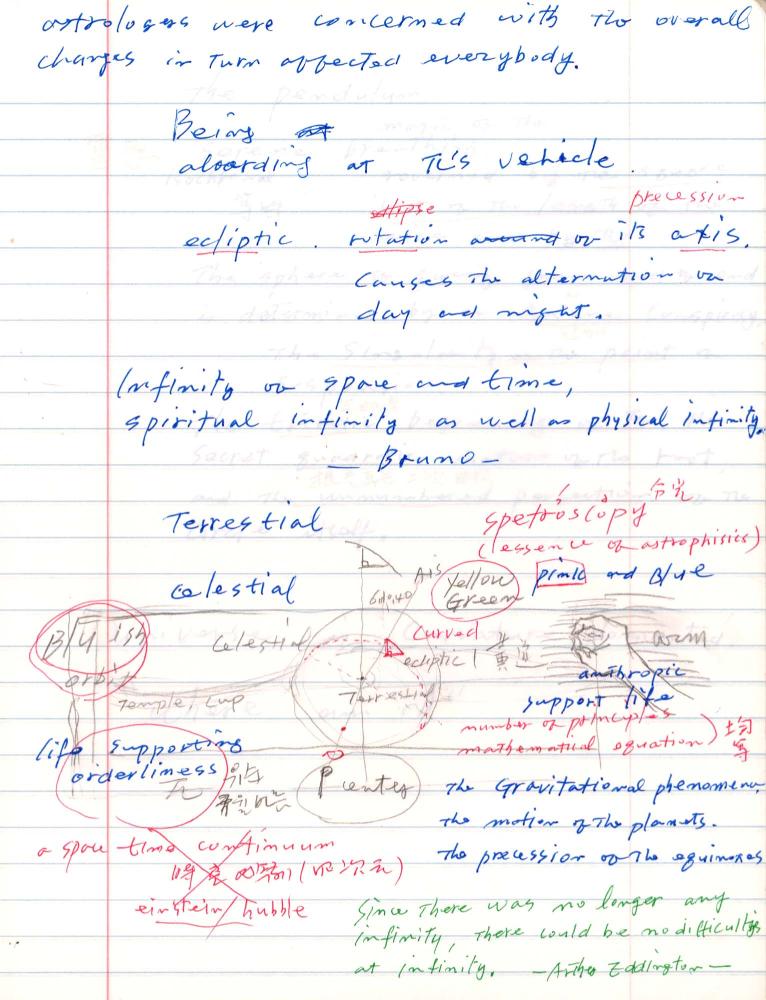 astrologers were concerned with the overall
changes in turn affected everybody.
Being
according at TL's vehicle.
ellipse precession
ecliptic . rotation around on its axis.
Causes the alternation on
day and night.
Infinity on space and time,
spiritual infinity as well as physical infinity.
— Bruno —
Terrestial
spetroscopy 分光
(essence of astrophisics)
Celestial
Yellow
Green
pink and Blue
Bluish
orbit
celestial
Curved
ecliptic | 黄道
arm
Temple, Cup
Terrestial
anthropic
support life
number of principles
mathematical equation) 均等
life supporting
orderliness
P center
The Gravitational phenomena,
The motion of the planets.
The precession of the equinoxes
a space time continuum
(四次元)
einstein/hubble
Since there was no longer any
infinity, there could be no difficultys
at infinity. —Arther Eddington—